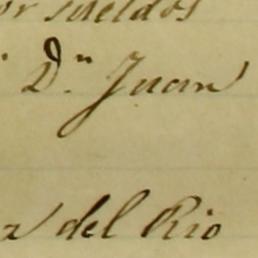 or sueldos
Dⁿ. Juan
a del Rio